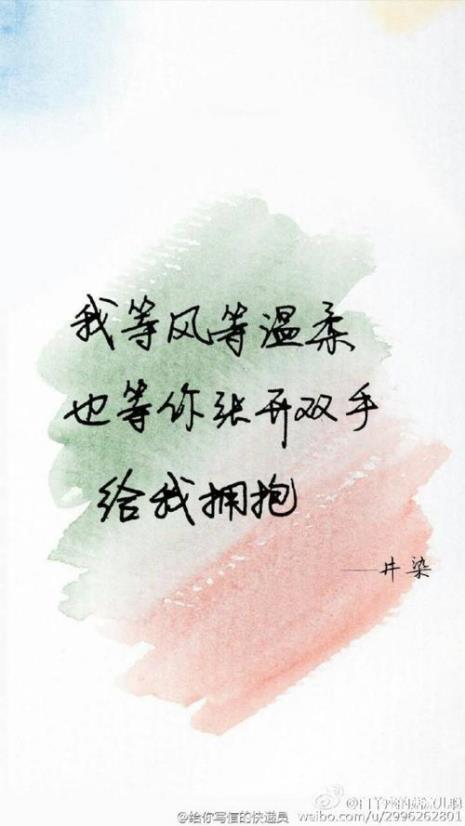 我等风等温柔
也等你张开双手
给我拥抱
——井染
@给你写信的快递员
weibo.com/u/2996262801